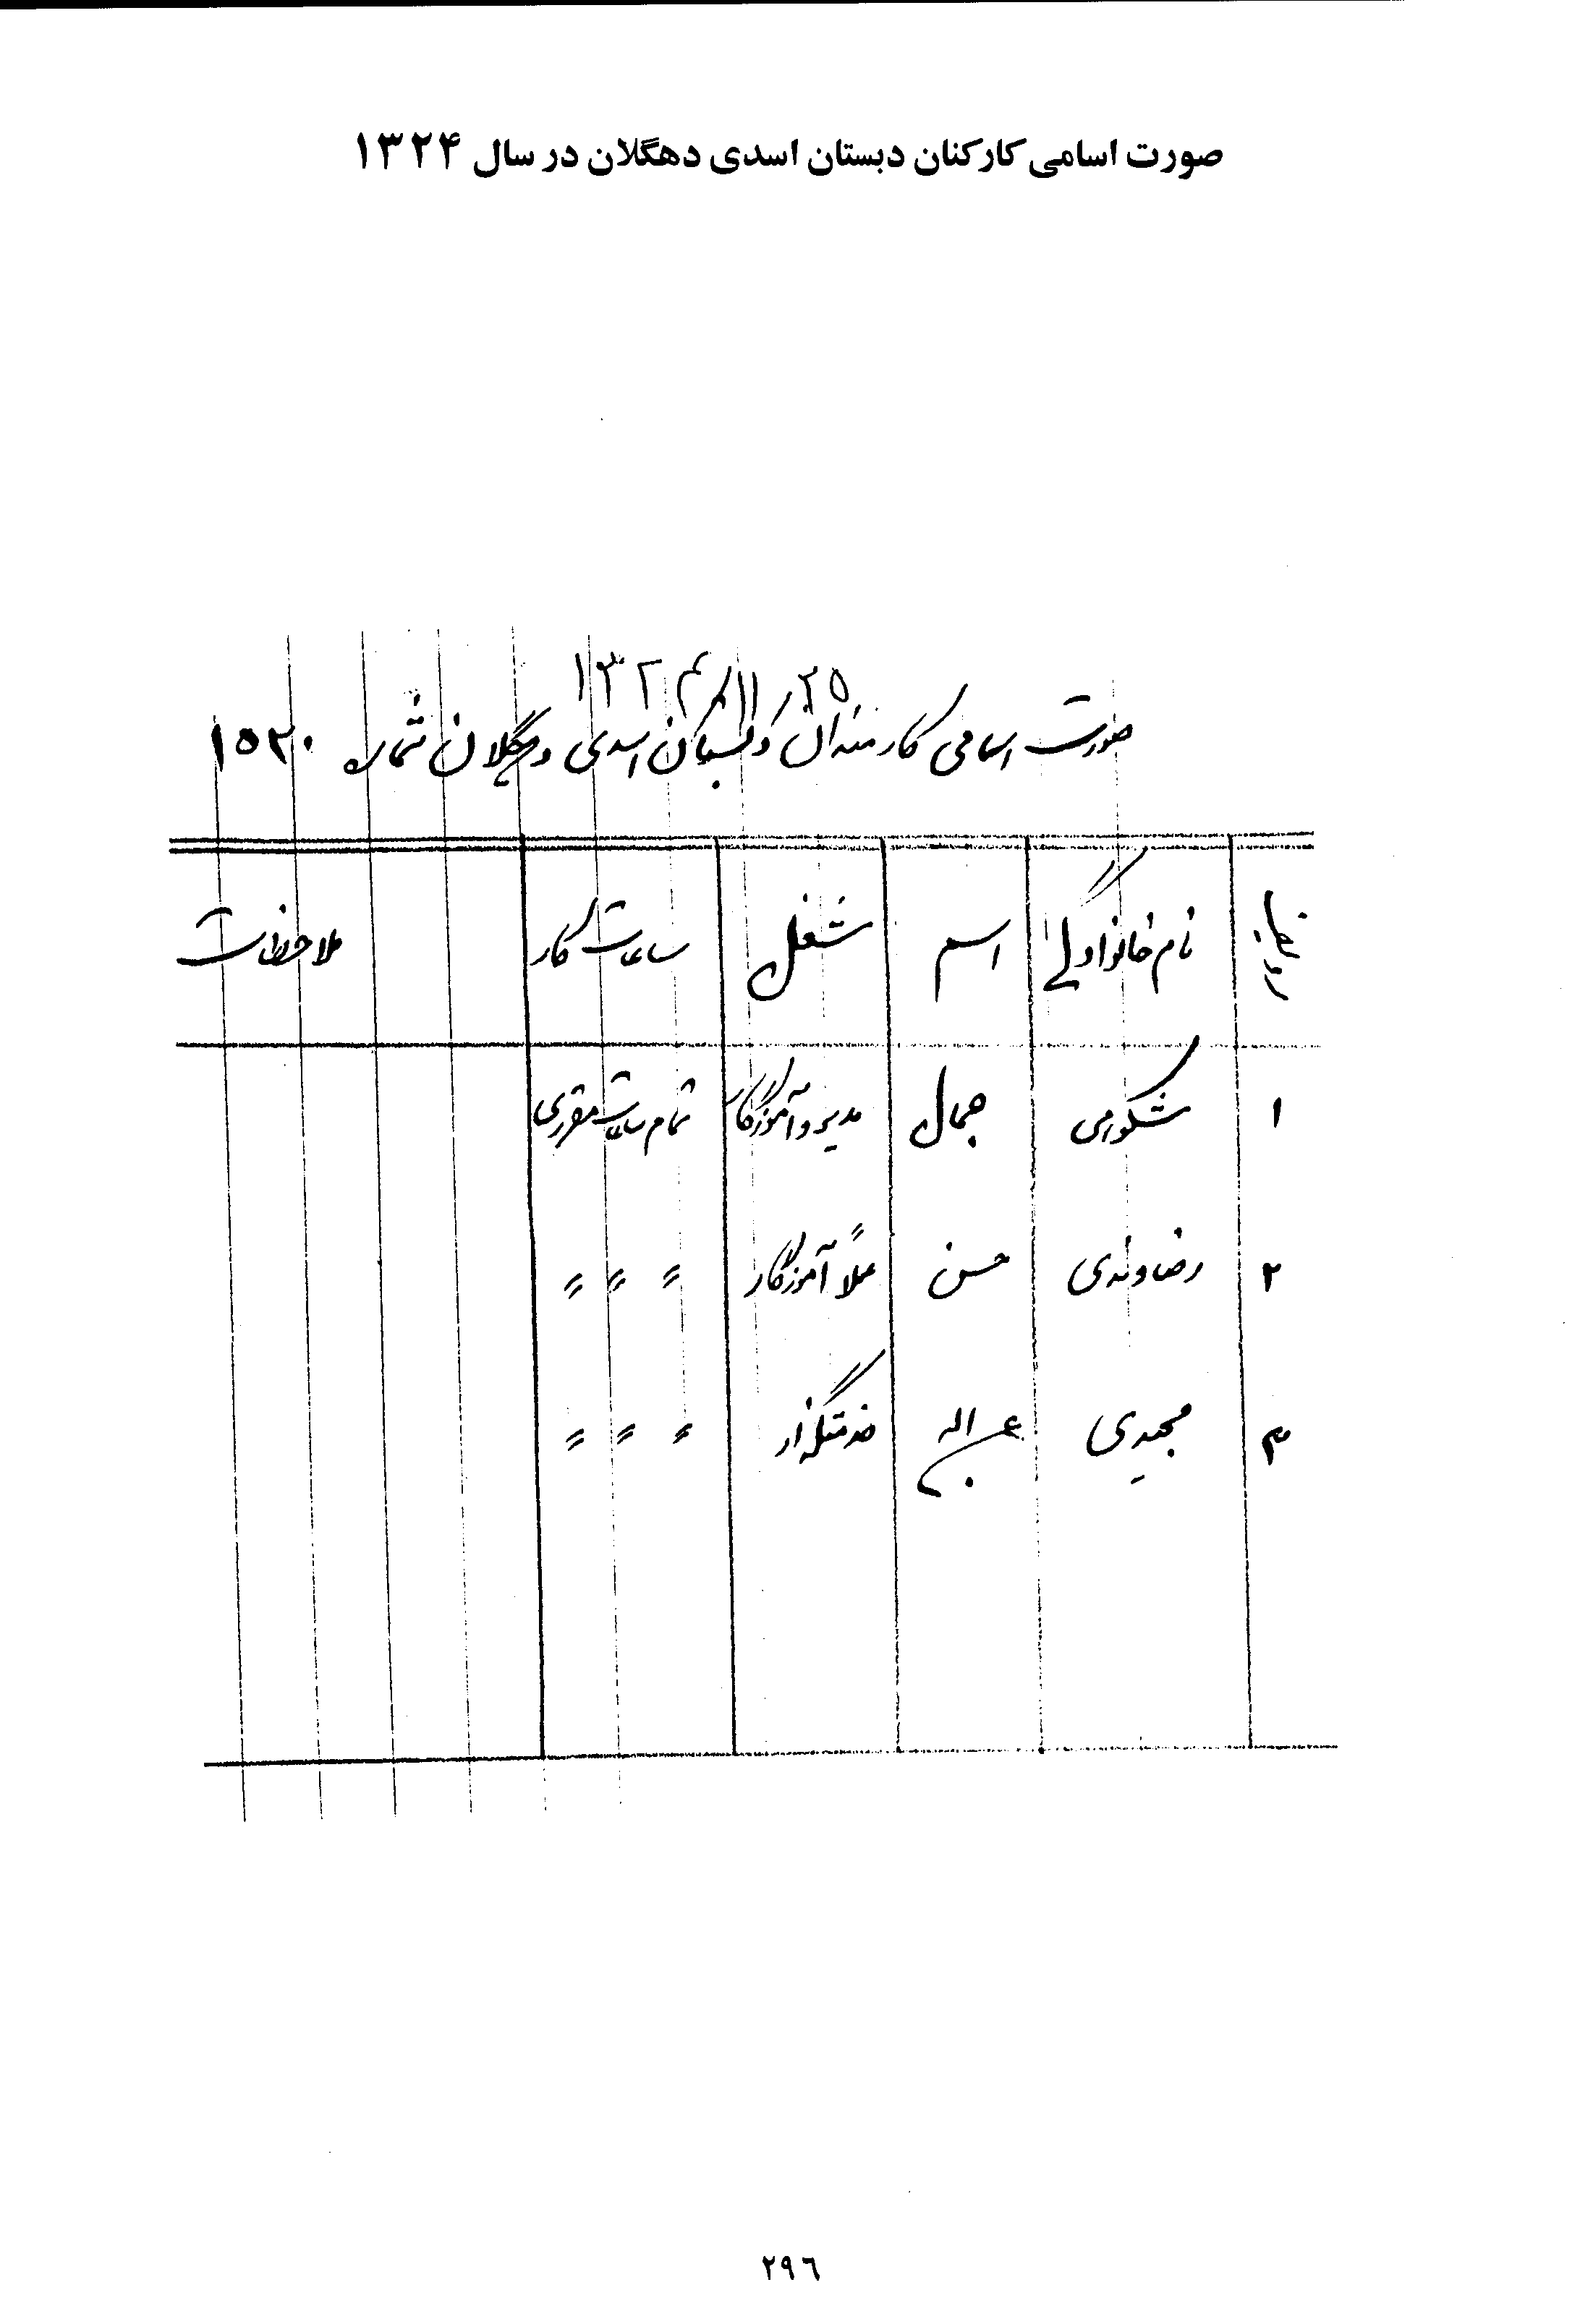 صورت اسامی کارکنان دبستان اسدی دهگلان در سال ۱۳۲۴
۱۳۲۴/۱۱/۲۵
صورت اسامی کارمندان دبستان اسدی دهگلان شماره ۱۵۲۰
ردیف نام خانوادگی اسم شغل ساعات کار ملاحظات
۱ شکورمی جمال مدیر و آموزگار تمام ساعات مقرری
۲ رضاوندی حسن عملاً آموزگار 〃 〃 〃
۳ مجیدی خدمتگزار 〃 〃 〃
۲۹۶